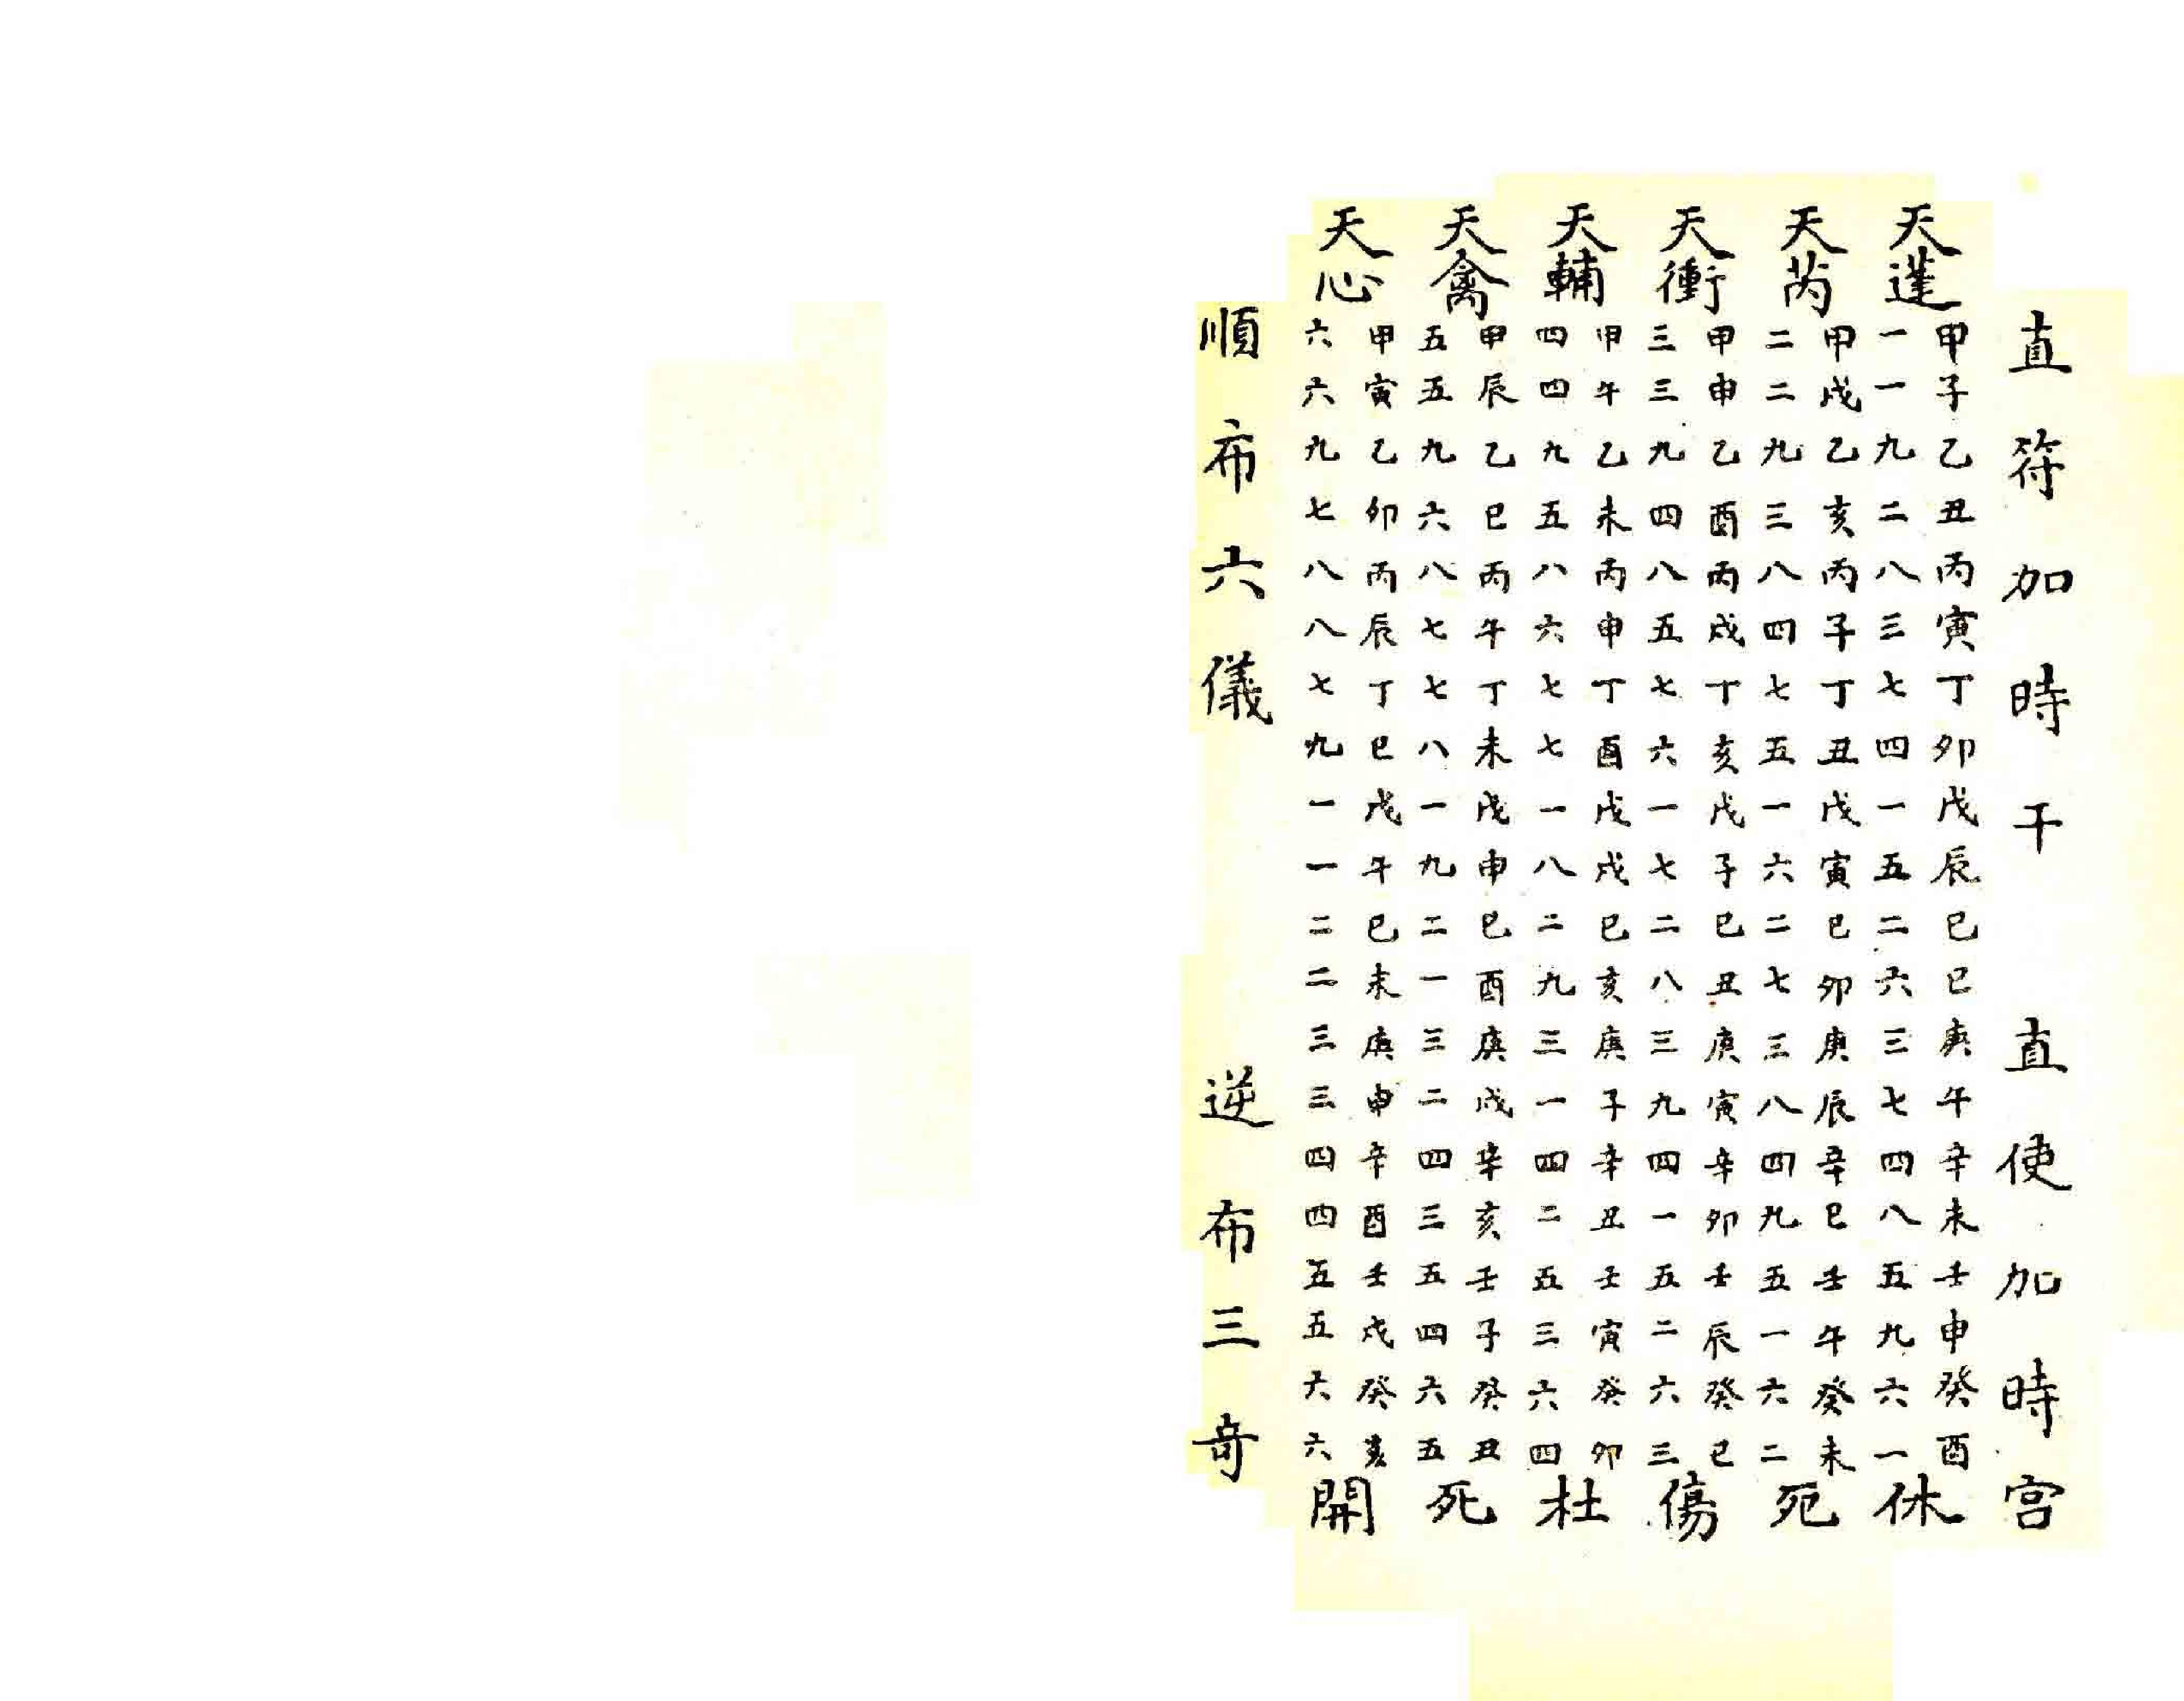 直符加時干 直使加時宫
天蓬
甲子乙丑丙寅丁卯戊辰己巳庚午辛未壬申癸酉
一一九二八三七四一五二六三七四八五九六一
休
天芮
甲戌乙亥丙子丁丑戊寅己卯庚辰辛巳壬午癸未
二二九三八四七五一六二七三八四九五一六二
死
天衝
甲申乙酉丙戌丁亥戊子己丑庚寅辛卯壬辰癸巳
三三九四八五七六一七二八三九四一五二六三
傷
天輔
甲午乙未丙申丁酉戊戌己亥庚子辛丑壬寅癸卯
四四九五八六七七一八二九三一四二五三六四
杜
天禽
甲辰乙巳丙午丁未戊申己酉庚戌辛亥壬子癸丑
五五九六八七七八一九二一三二四三五四六五
死
天心
甲寅乙卯丙辰丁巳戊午己未庚申辛酉壬戌癸亥
六六九七八八七九一一二二三三四四五五六六
開
順布六儀 逆布三奇